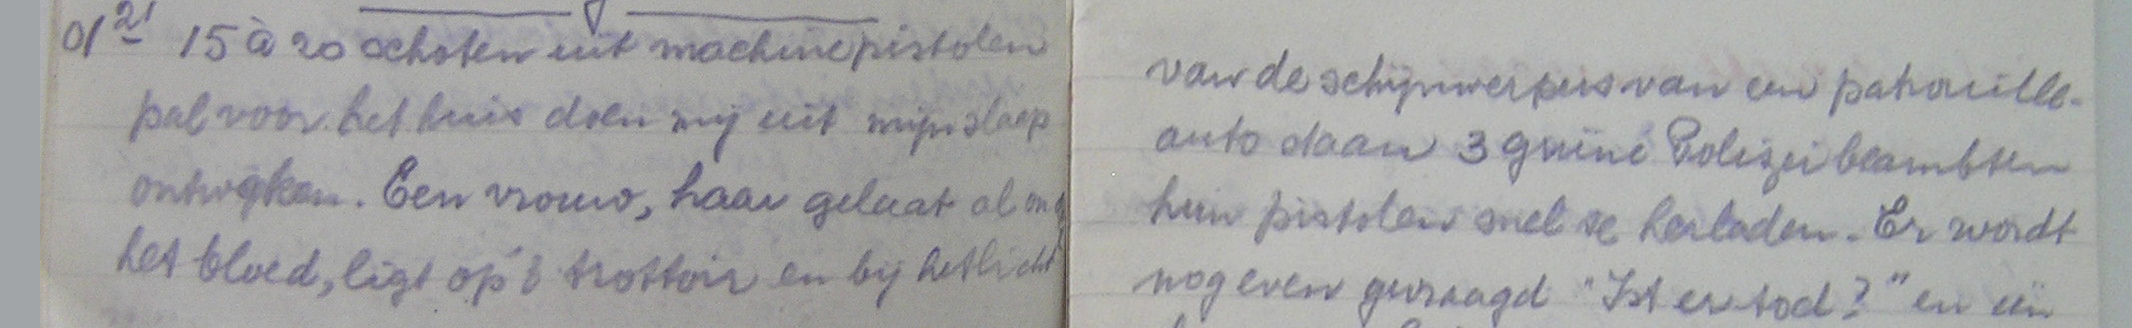 01²¹ 15 à 20 schoten uit machinepistolen
pal voor het huis doen mij uit mijn slaap
ontwaken. Een vrouw, haar gelaat al onder
het bloed, ligt op 't trottoir en bij het licht
van de schijnwerpers van een patrouille-
auto staan 3 grüne Polizei beambten
hun pistolen snel te herladen. Er wordt
nog even gevraagd "Ist er tod?" en een